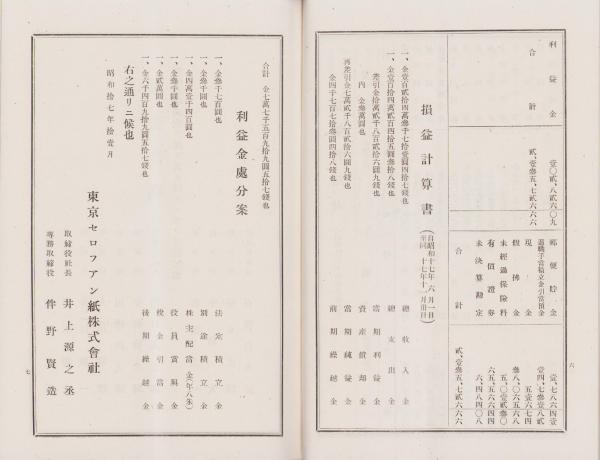 利益金
合計
壹〇貳、八貳六〇九
貳、壹叁五、七貳六六六
郵便貯金
退職手當積立金引當預金
現金
假拂金
未經過保險料
有價證券
未決算勘定
合計
壹、七八六四壹
壹四、七叁壹八貳
五壹六七四
叁八、〇六五六八
五、〇壹貳叁〇
六五、五六六四四
六、四八四〇八
貳、壹叁五、七貳六六六
六
損益計算書
自昭和十七年六月一日
至同十七年十一月卅日
一、金壹百貳拾四萬叁千七拾壹圓四拾七錢也 總收入金
一、金壹百拾四萬貳百四拾五圓叁拾八錢也 總支出金
差引金拾萬貳千八百貳拾六圓九錢也 當期利益金
內 金叁萬圓也 資產償却金
再差引金七萬貳千八百貳拾六圓九錢也 當期純益金
金四千七百七拾叁圓四拾八錢也 前期繰越金
合計 金七萬七千五百九拾九圓五拾七錢也
利益金處分案
一、金千七百圓也 法定積立金
一、金叁千圓也 別途積立金
一、金四萬壹千四百圓也 株主配當金(年八朱)
一、金叁千圓也 役員賞與金
一、金貳萬圓也 稅金引當金
一、金六千四百九拾九圓五拾七錢也 後期繰越金
右之通リニ候也
昭和拾七年拾壹月
東京セロフアン紙株式會社
取締役社長 井上源之丞
專務取締役 伴野賢造
七